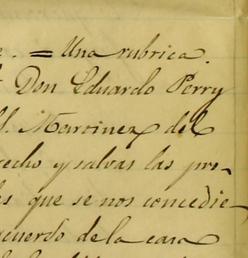 . = Una rubrica.
Don Eduardo Perry
Martinez del
recho y salvas las pro-
es que se nos concedie-
cuerdo de la casa